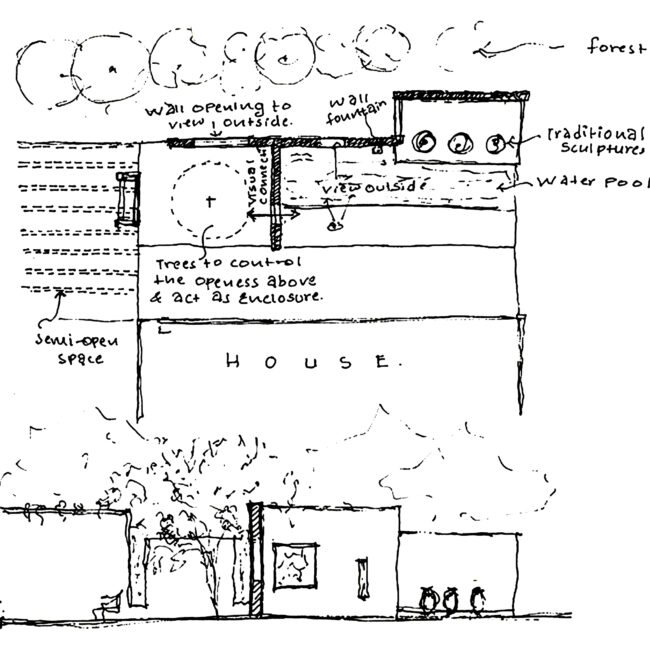 forest
wall opening to
view outside.
wall
fountain
Traditional
sculptures
visual
connect
view outside
water pool
Trees to control
the openess above
& act as Enclosure.
semi-open
space
HOUSE.